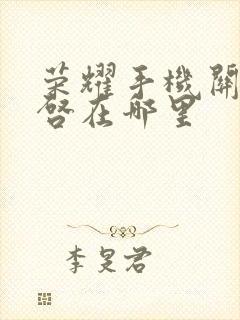 荣耀手機關
啓在哪里
李旻君